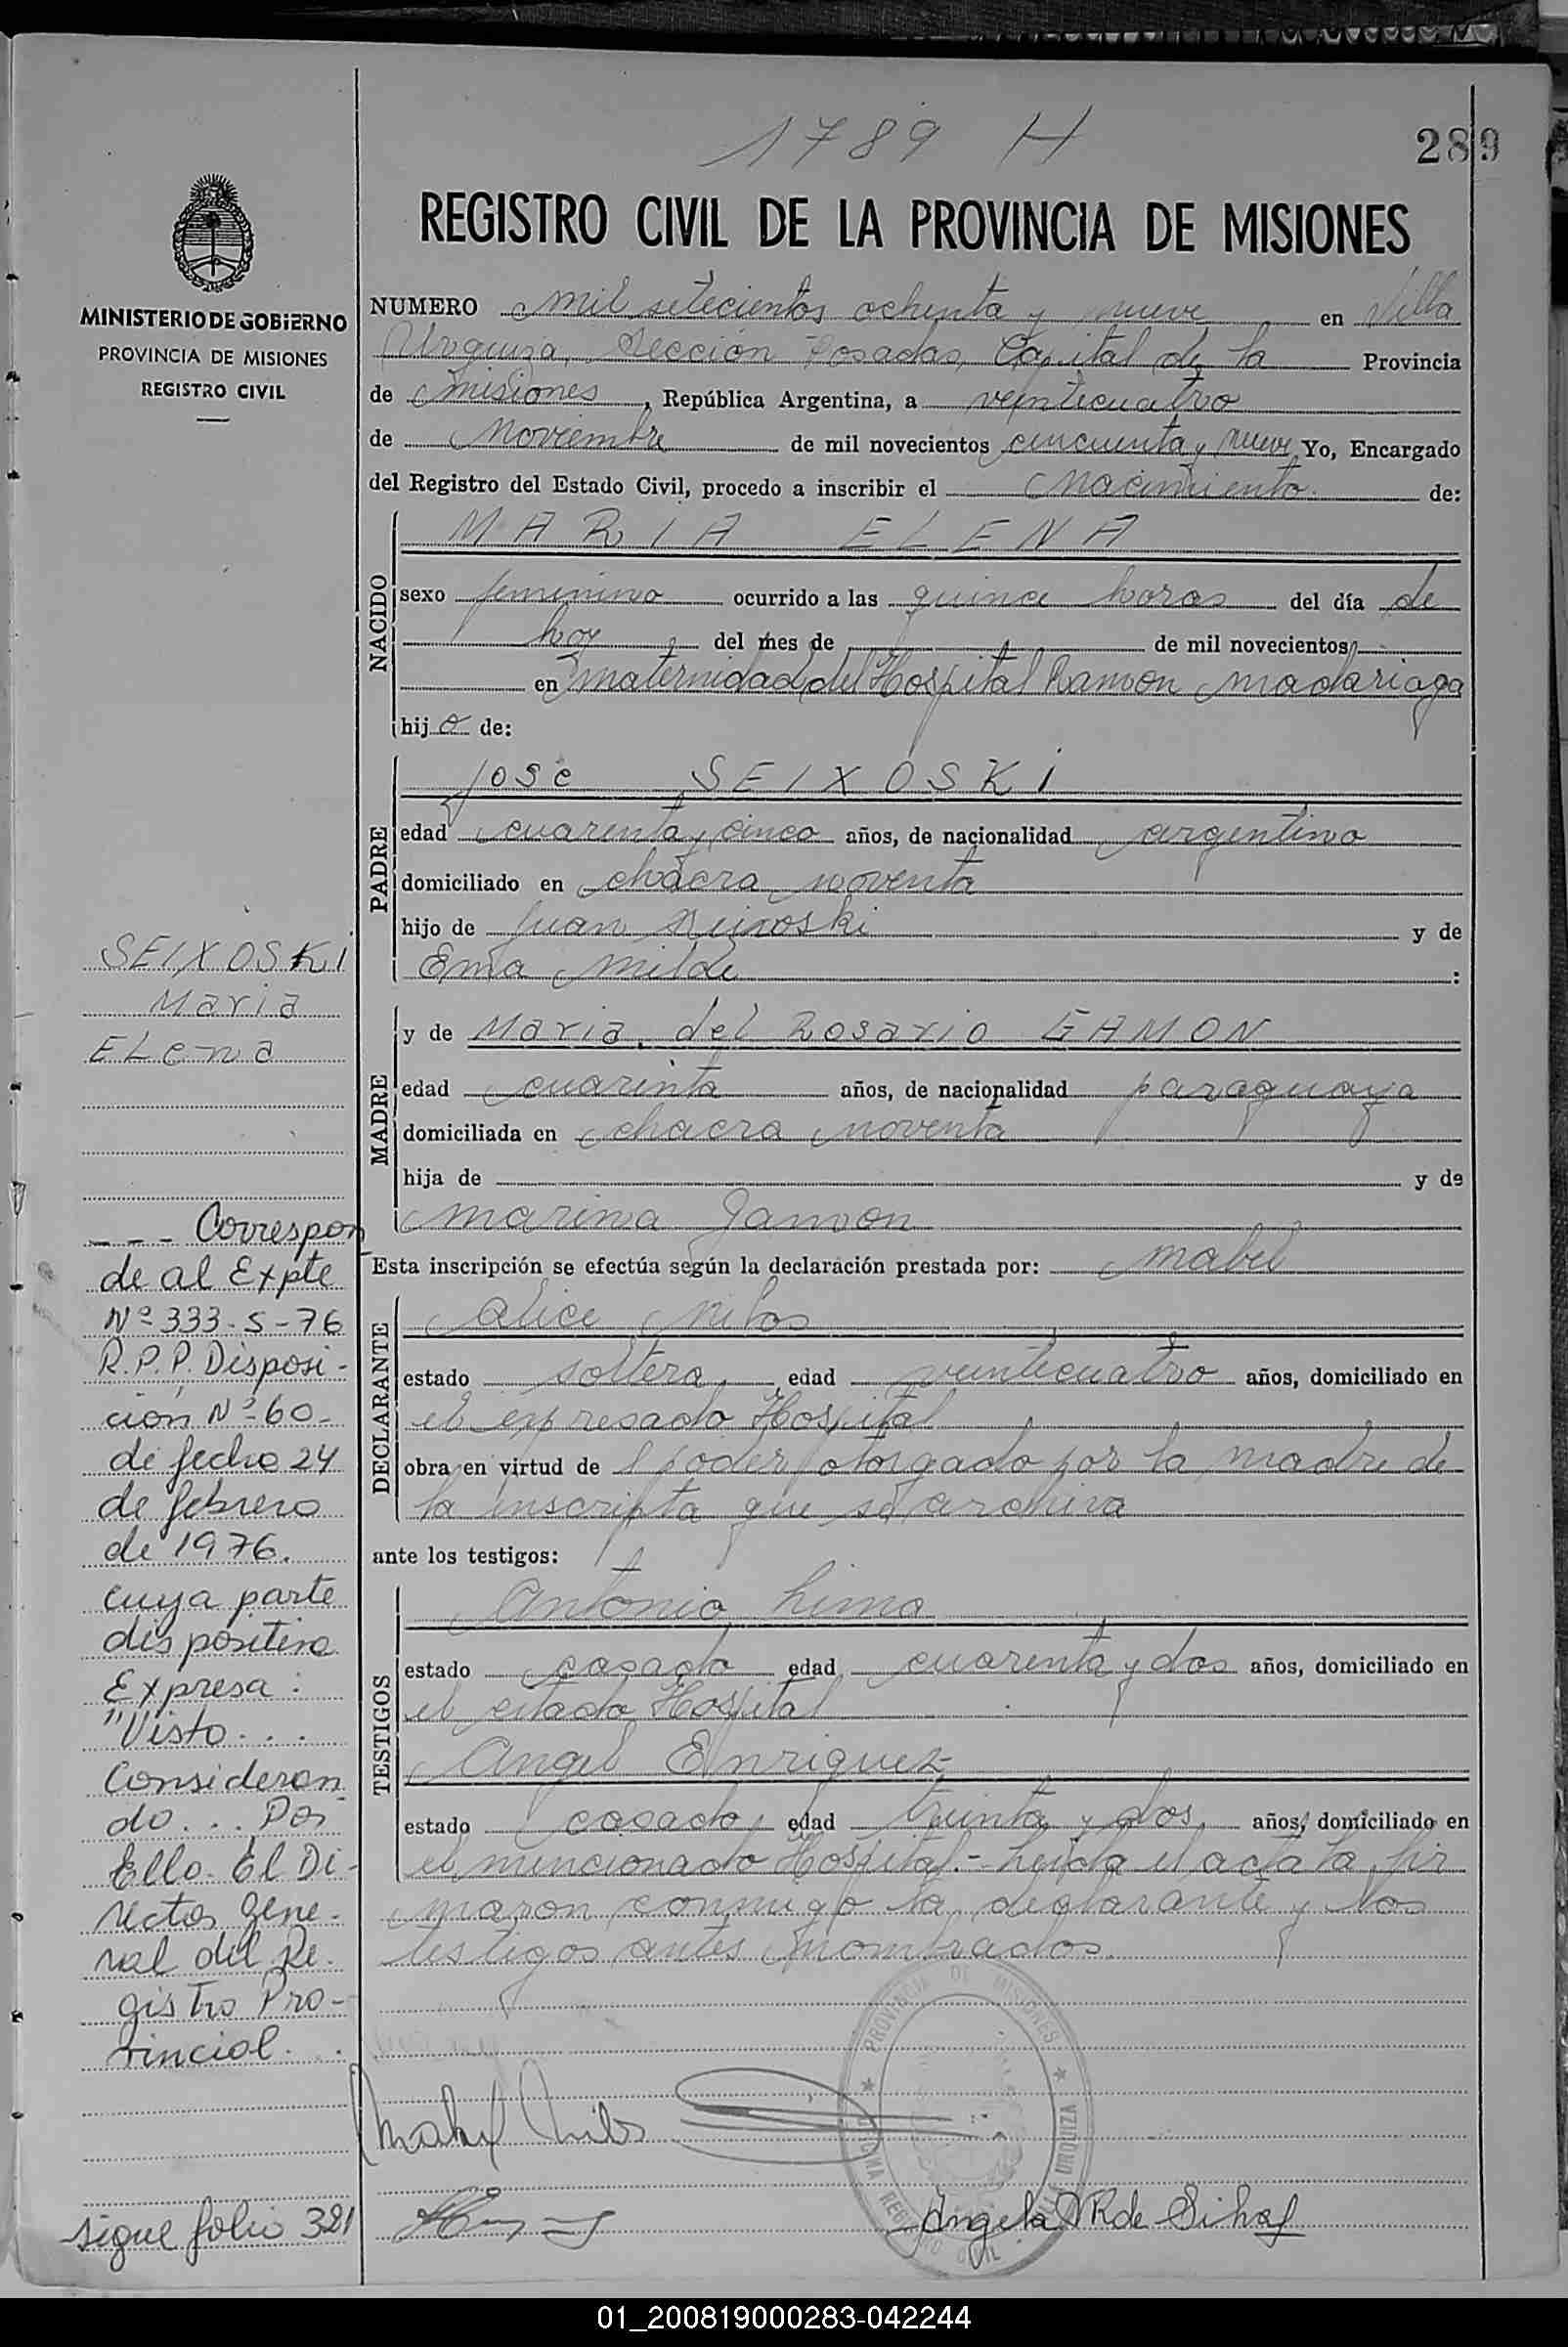 1789 H
289
REGISTRO CIVIL DE LA PROVINCIA DE MISIONES
MINISTERIO DE GOBIERNO
PROVINCIA DE MISIONES
REGISTRO CIVIL
NUMERO mil setecientos ochenta y nueve en Villa
Urquiza, Sección Posadas, Capital de la Provincia
de Misiones, República Argentina, a veinticuatro
de Noviembre de mil novecientos cincuenta y nueve Yo, Encargado
del Registro del Estado Civil, procedo a inscribir el Nacimiento de:
NACIDO
MARIA ELENA
sexo femenino ocurrido a las quince horas del día de
hoy, del mes de de mil novecientos
en Maternidad del Hospital Ramon Madariaga
hijo de:
PADRE
Jose SEIXOSKI
edad cuarenta y cinco años, de nacionalidad argentino
domiciliado en chacra noventa
hijo de Juan Seixoski y de
Ema Milde :
MADRE
y de Maria del Rosario GAMON
edad cuarenta años, de nacionalidad paraguaya
domiciliada en chacra noventa
hija de y de
Marina Gamon
Esta inscripción se efectúa según la declaración prestada por: Mabel
DECLARANTE
Alice
estado soltera, edad veinticuatro años, domiciliado en
el expresado Hospital
obra en virtud de poder otorgado por la madre de
la inscripta que se archiva
ante los testigos:
TESTIGOS
Antonio Lima
estado casado edad cuarenta y dos años, domiciliado en
el citado Hospital
Angel Enriquez
estado casado, edad treinta y dos, años, domiciliado en
el mencionado Hospital.- Leida el acta la fir
maron conmigo la declarante y los
testigos antes nombrados.
SEIXOSKI
Maria
ELena
--- Correspon
de al Expte
Nº 333-S-76
R.P.P. Disposi-
ción Nº 60-
de fecha 24
de febrero
de 1976.
cuya parte
dispositiva
Expresa:
"Visto...
Consideran
do... Por
Ello. El Di-
rector Gene-
ral del Re.
gistro Pro-
vincial. .
sigue folio 321
Mabel
Angela R de
PROVINCIA DE MISIONES
OFICINA REGISTRO CIVIL
VILLA URQUIZA
01_200819000283-042244